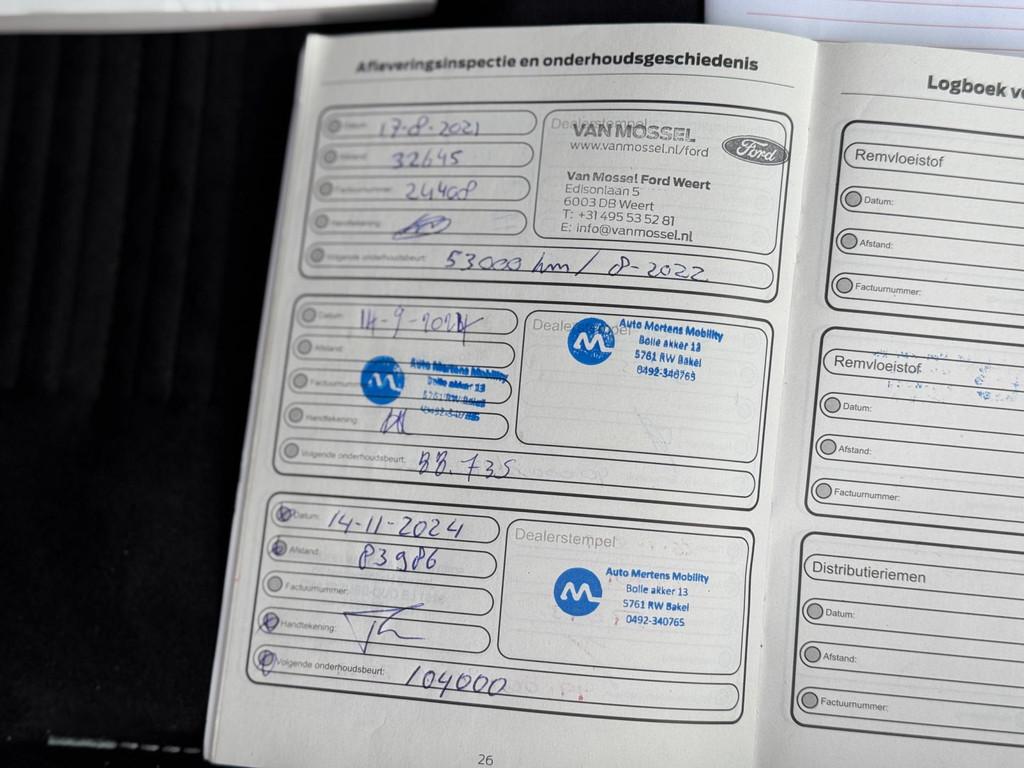 Afleveringsinspectie en onderhoudsgeschiedenis
Datum: 17-8-2021
Afstand: 32645
Factuurnummer: 24408
Handtekening:
Volgende onderhoudsbeurt: 53000 km / 8-2022
Dealerstempel
VAN MOSSEL
www.vanmossel.nl/ford
Ford
Van Mossel Ford Weert
Edisonlaan 5
6003 DB Weert
T: +31 495 53 52 81
E: info@vanmossel.nl
Datum: 14-9-2021
Afstand:
Factuurnummer:
Auto Mertens Mobility
Bolle akker 13
5761 RW Bakel
0492-340765
Handtekening:
Volgende onderhoudsbeurt: 88.735
Dealerstempel
Auto Mertens Mobility
Bolle akker 13
5761 RW Bakel
0492-340765
Datum: 14-11-2024
Afstand: 83986
Factuurnummer:
Handtekening:
Volgende onderhoudsbeurt: 104000
Dealerstempel
Auto Mertens Mobility
Bolle akker 13
5761 RW Bakel
0492-340765
26
Logboek
Remvloeistof
Datum:
Afstand:
Factuurnummer:
Remvloeistof
Datum:
Afstand:
Factuurnummer:
Distributieriemen
Datum:
Afstand:
Factuurnummer: